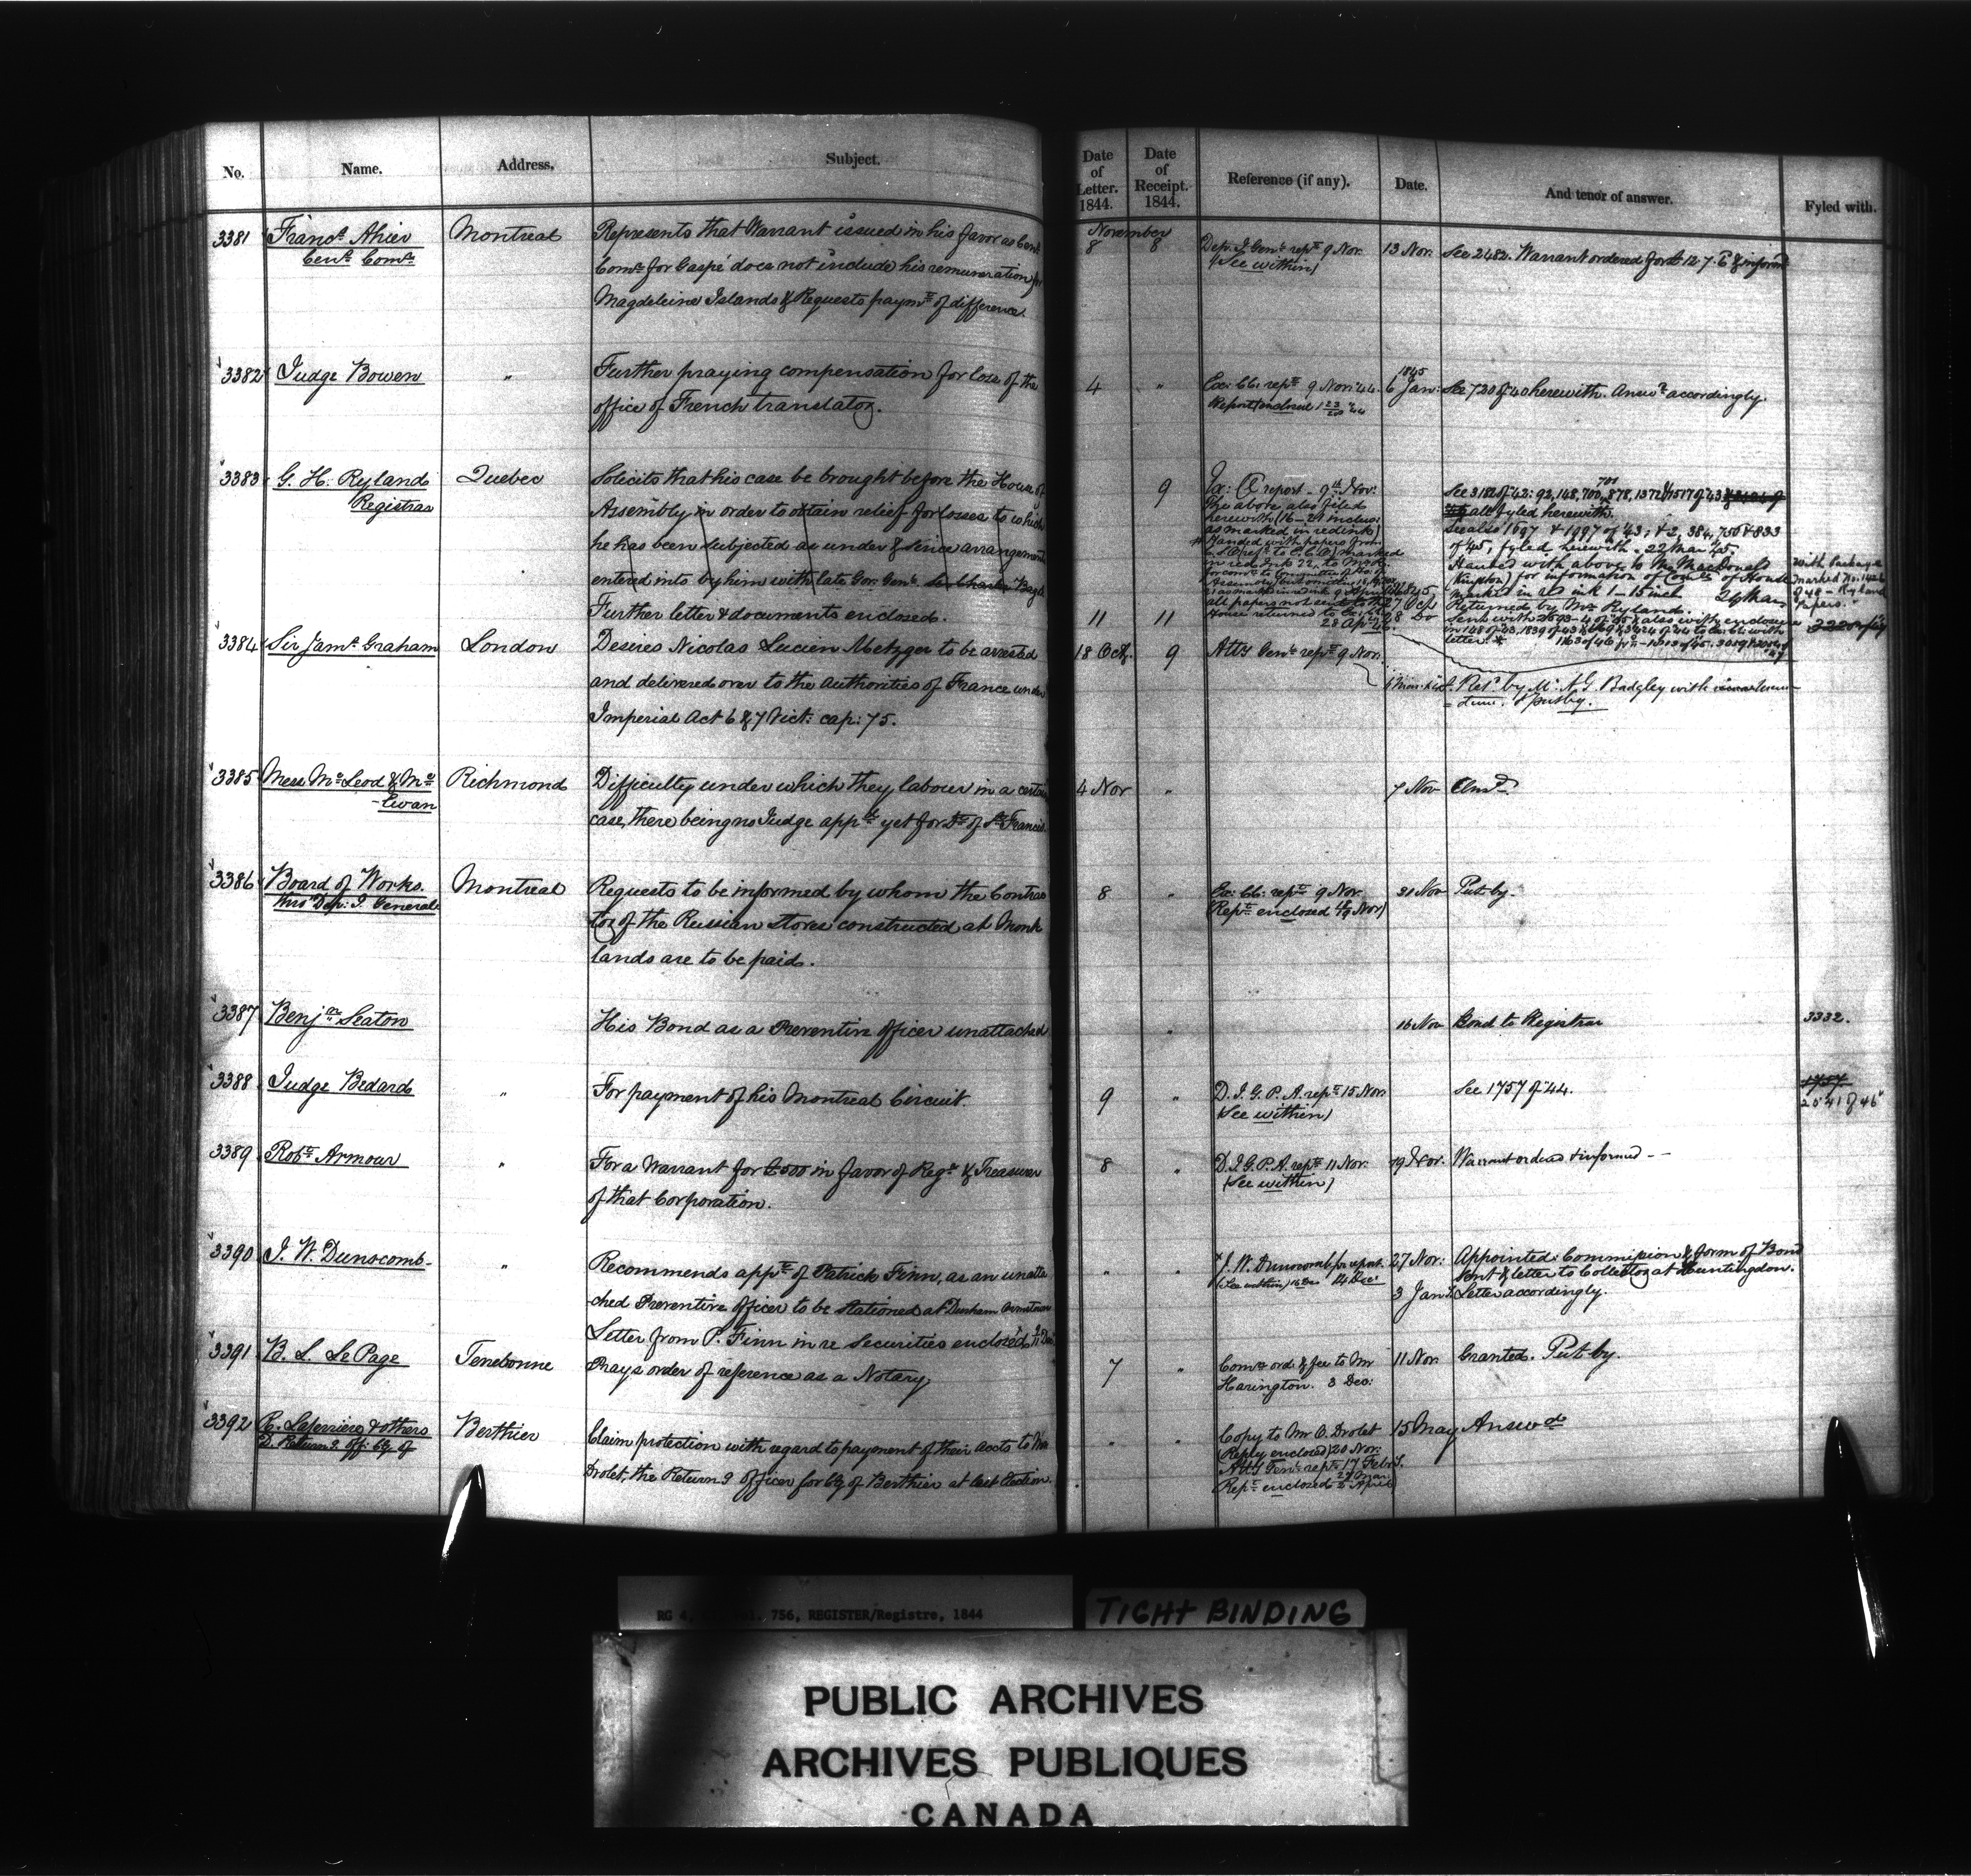 No. Name. Address. Subject. Date of Letter. 1844. Date of Receipt. 1844. Reference (if any). Date. And tenor of answer. Fyled with.
November
3381 Franc.s Ahier Montreal Represents that Warrant issued in his favor as Cens. 8 8 Dep: I. Genl. rept. 9 Nov. 13 Nov. See 2482. Warrant ordered for £12.7.6 & informd
Cens. Comr. Comr. for Gaspé does not include his remuneration for (See within)
Magdeleine Islands & Requests paymt. of difference.
3382 Judge Bowen " Further praying compensation for loss of the 4 " Ex: Co: rept. 9 Nov: 44. 1845 6 Jan: See 720 of 40 herewith. Answd. accordingly.
office of French translator. Report enclosed
3383 G. H. Ryland Quebec Solicits that his case be brought before the House of 9 Ex: C report - 9th Nov:
Registrar Assembly in order to obtain relief for losses to which
he has been subjected as under & since arrangements
entered into by him with late Gov: Genl. Bagot
Further letter & documents enclosed. 11 11
The above also filed
herewith (16-21 inclus:
as marked in red ink)
House returned to
28 Apl.
See 3182 of 42: 92, 148, 700, 701, 878, 1372 & 1517 of 43
all fyled herewith.
See also 1697 & 1997 of 43, & 2, 384, 756 & 833
of 45, fyled herewith. 22 Mar 45.
Handed with above to Mr MacDonald
(Kingston) for information of Comte. of House
marked in red ink 1-15 incl.
Returned by Mr. Ryland.
With Package
marked No. 142
of 40 - Ryland
Papers.
3384 Sir Jams. Graham London Desires Nicolas Lucien Metzger to be arrested 18 Oct. 9 Atty Genl. rept. 9 Nov.
and delivered over to the authorities of France under
Imperial Act 6 & 7 Vict: cap: 75.
Ret. by Mr. Badgley with
Put by.
3385 Mess. McLeod & Mc Ewan Richmond Difficulty under which they labour in a certain 4 Nov " 7 Nov Ansd.
case, there being no Judge appd. yet for Dt. of St. Francis.
3386 Board of Works. Montreal Requests to be informed by whom the Contrac 8 " Ex: Co: rept. 9 Nov. 21 Nov Put by.
thro' Dep: I. General tor of the Russian Stoves constructed at Monk (Rept. enclosed Nov)
lands are to be paid.
3387 Benjn. Seaton His Bond as a Preventive officer unattached " 16 Nov Bond to Registrar 3332.
3388 Judge Bedard " For payment of his Montreal Circuit. 9 " D. I. G. P. A. rept. 15 Nov. See 1757 of 44. 1757
(See within) 2541 of 46
3389 Robt. Armour " For a Warrant for £500 in favor of Regr. & Treasurer 8 " D. I. G. P. A. rept. 11 Nov. 19 Nov. Warrant ordered & informed
of that Corporation. (See within)
3390 J. W. Dunscomb. " Recommends appt. of Patrick Finn, as an unatta " " J. W. Dunscomb for report. 27 Nov. Appointed. Commission & form of Bond
ched Preventive officer to be stationed at Dunham (See within) 14 Dec. sent & letter to Collector at Huntingdon.
Letter from P. Finn in re securities enclosed 3 Jan Letter accordingly.
3391 B. L. LePage Terrebonne Prays order of reference as a Notary 7 " Comn. ord. & fee to Mr 11 Nov. Granted. Put by.
Harington. 3 Dec:
3392 Laferriere & others Berthier Claim protection with regard to payment of their accts to Mr " " Copy to Mr O. Drolet 15 May Answd
D. Returng. off: Cy of Drolet, the Returng officer for Cy of Berthier at last Election. (Reply enclosed) 20 Nov.
Atty Genl. rept. 17 Feby.
Rept. enclosed 2 April
RG 4, 756, REGISTER/Registre, 1844
TIGHT BINDING
PUBLIC ARCHIVES
ARCHIVES PUBLIQUES
CANADA